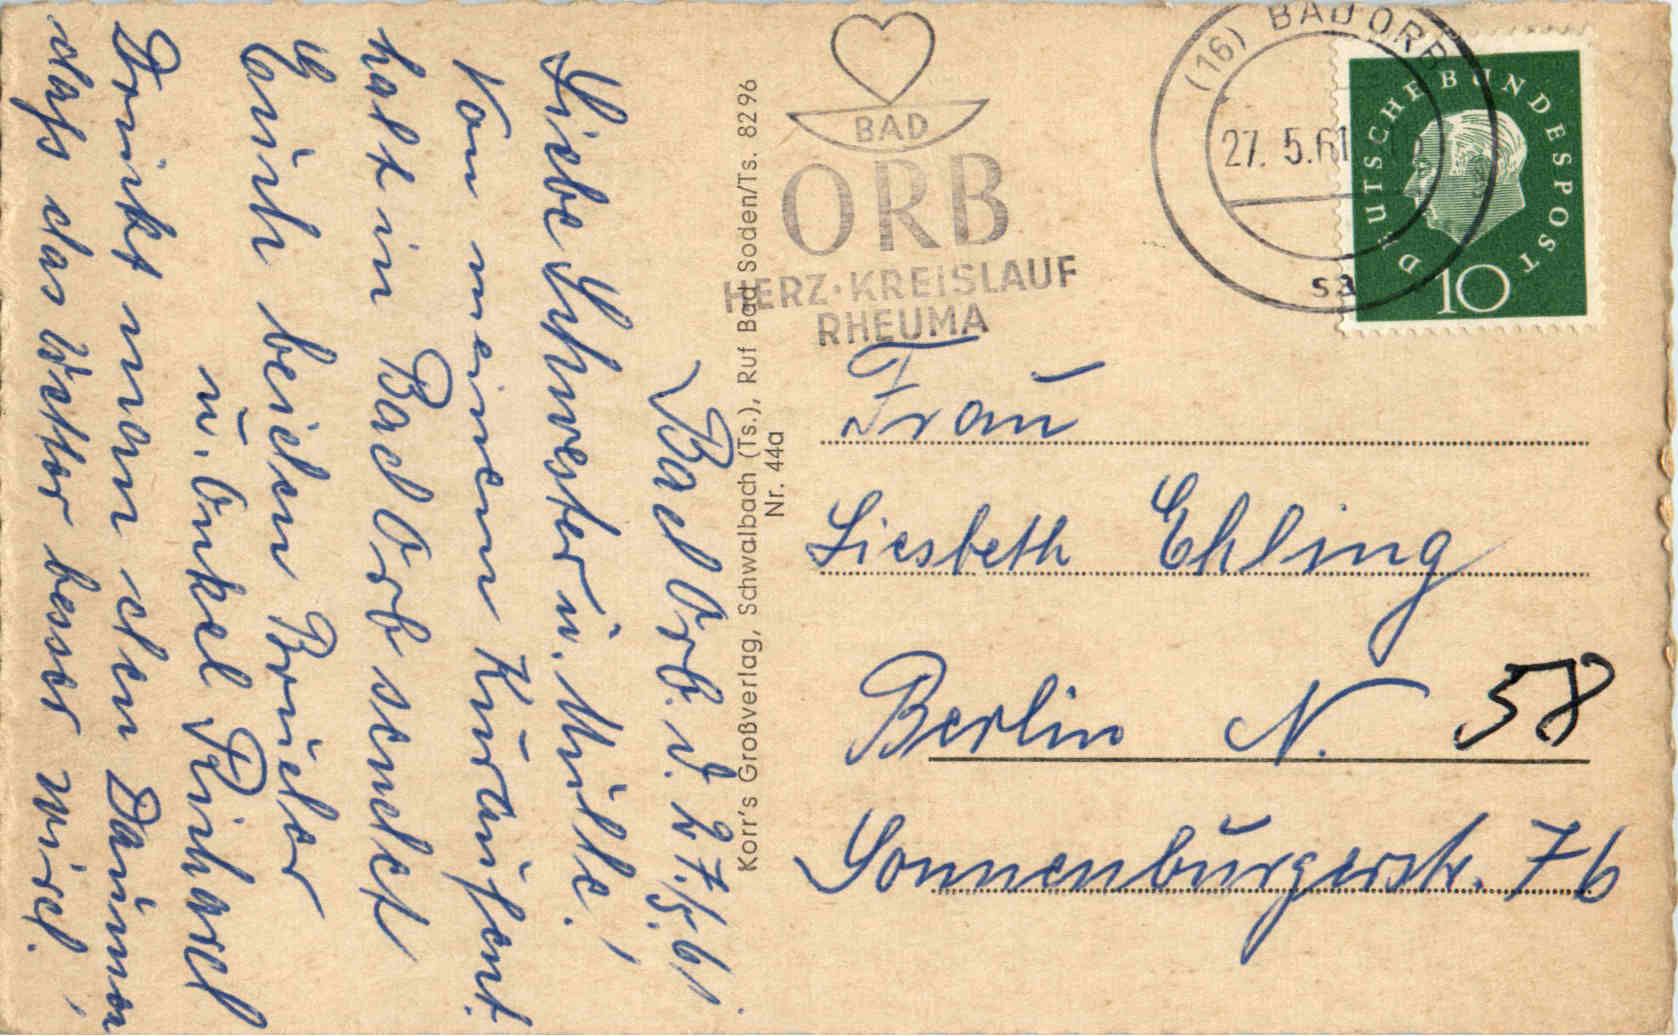 Bad Orb. d. 27./5.61.
Liebe Schwester u. Mülle!
Von meinem Kuraufent
halt in Bad Orb sendet
Euch beiden Bruder
u. Onkel Richard
Drückt man den Daumen,
dass das Wetter besser wird.
Korr's Großverlag, Schwalbach (Ts.), Ruf Bad Soden/Ts. 8296
Nr. 44a
BAD
ORB
HERZ·KREISLAUF
RHEUMA
(16) BAD ORB
27. 5.61
sa
DEUTSCHE BUNDESPOST
10
Frau
Liesbeth Ehling
Berlin N. 58
Sonnenburgerstr. 76